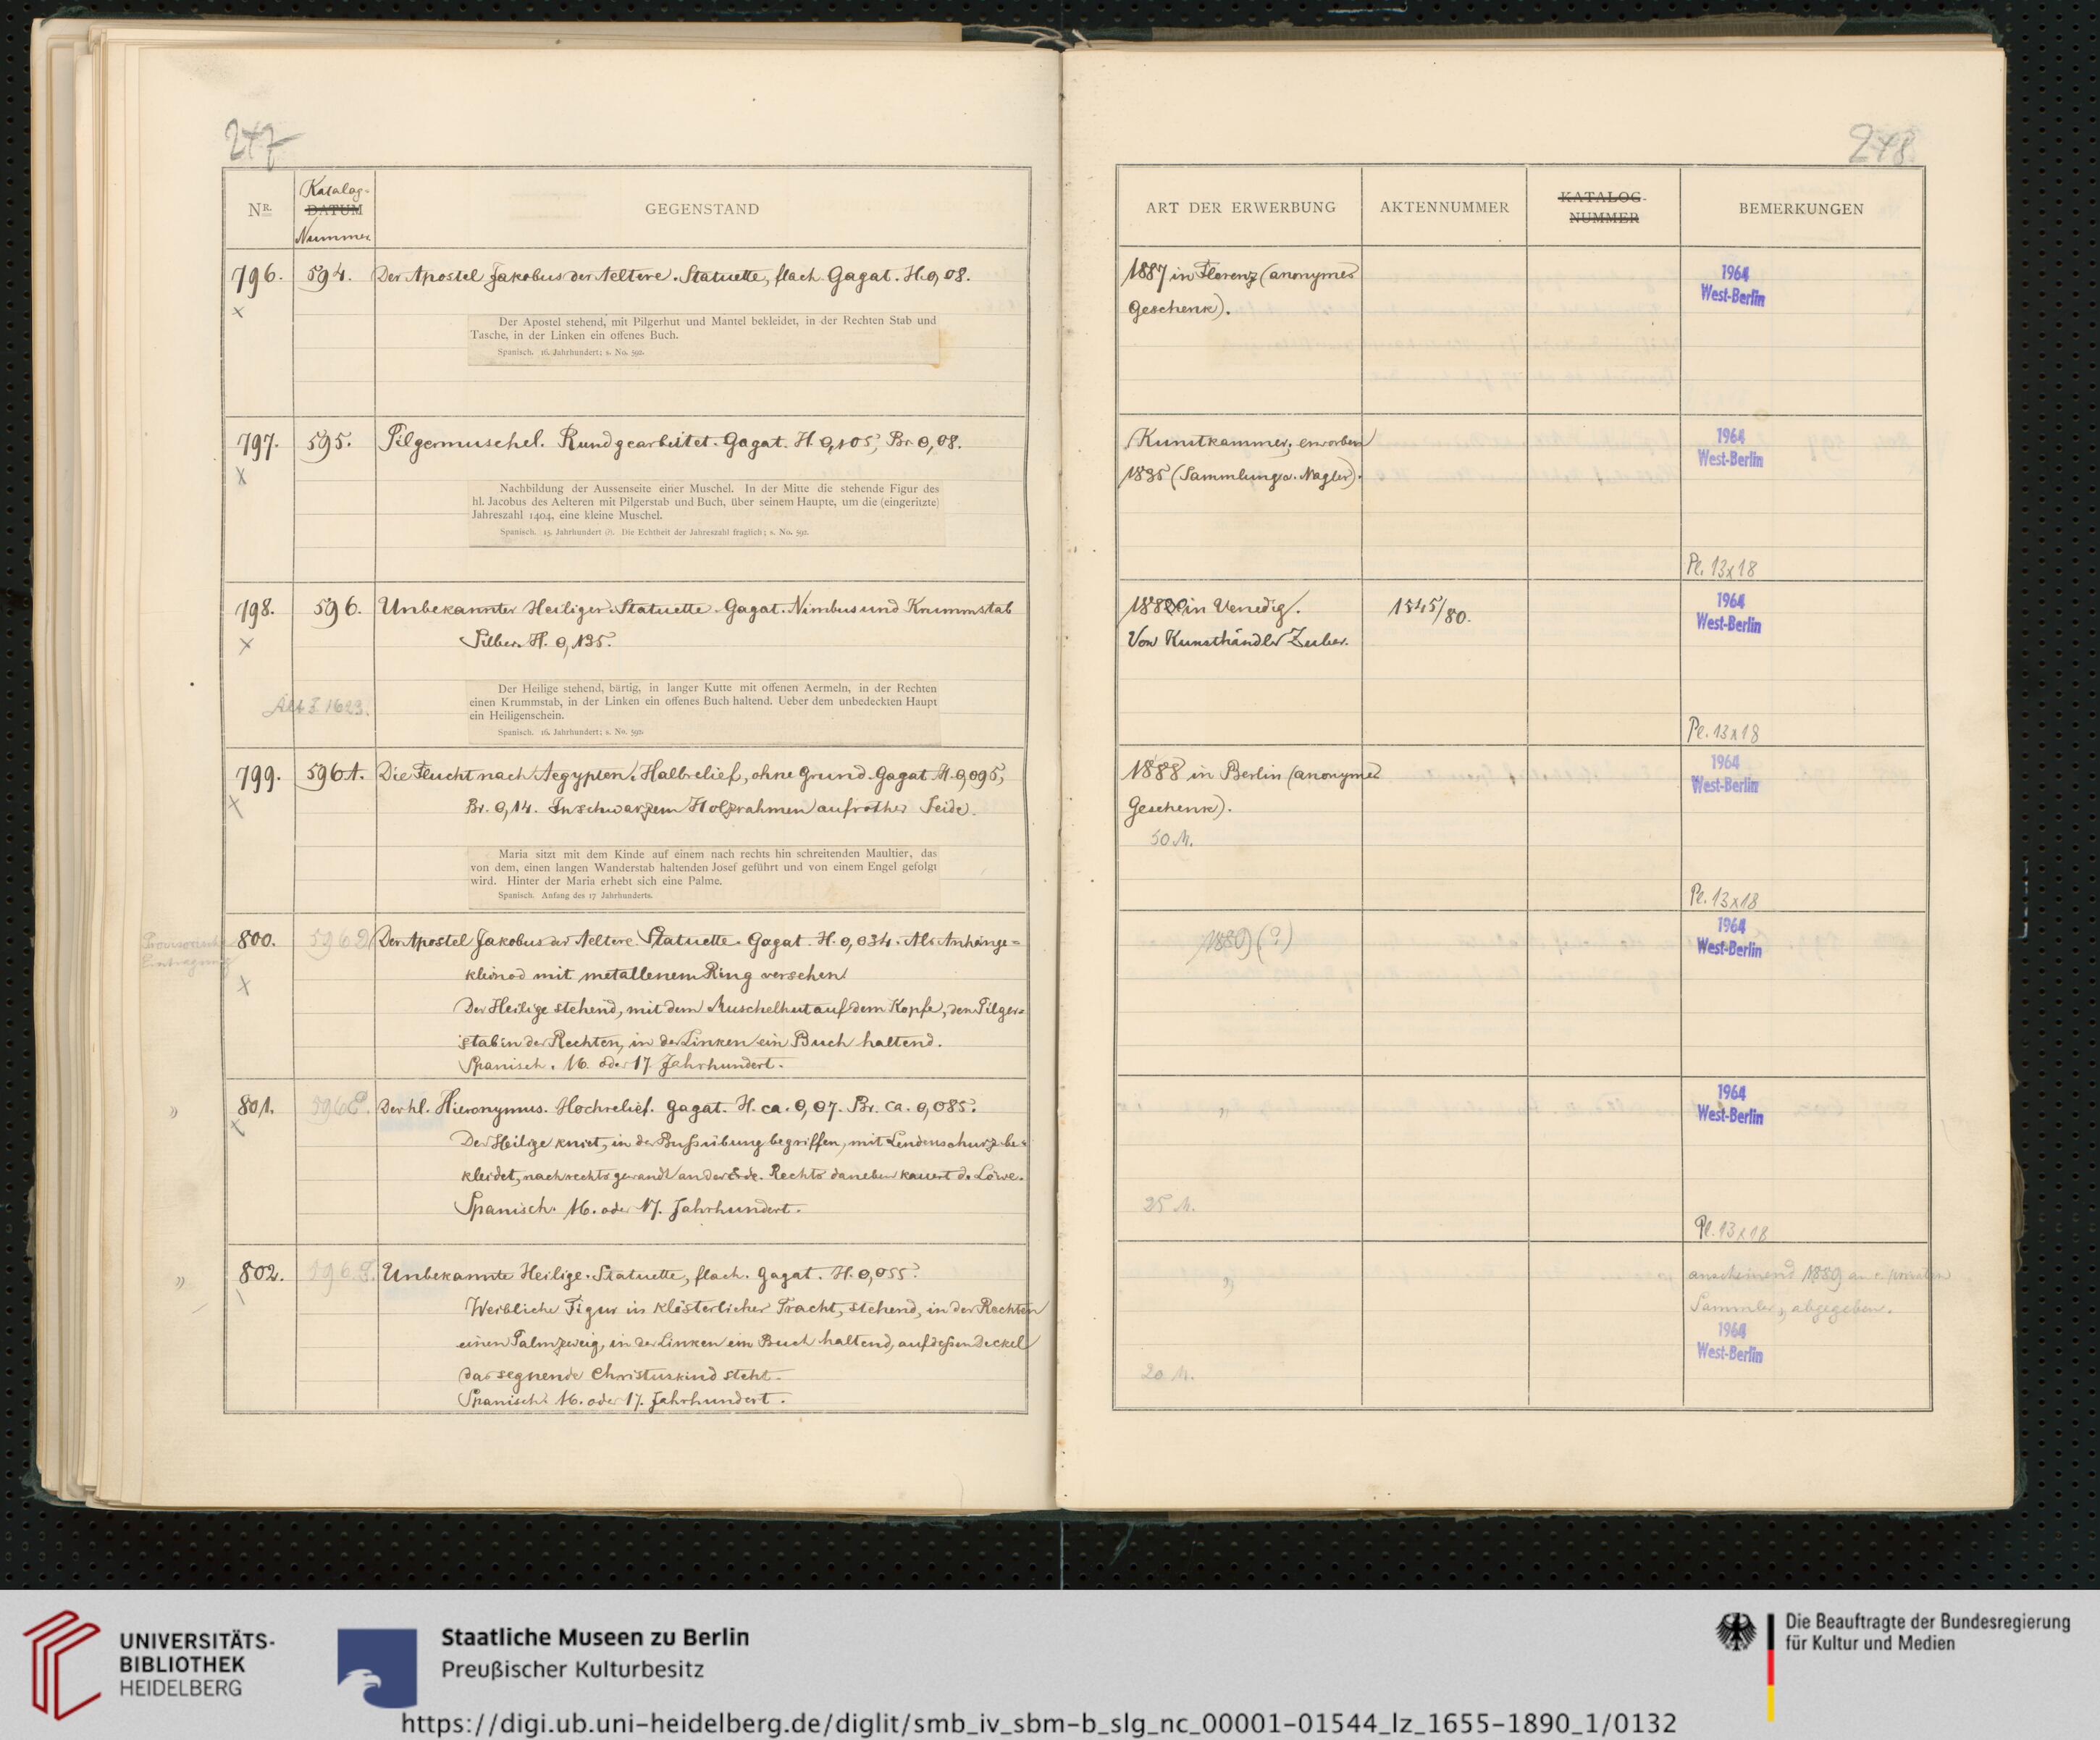 247
248
NR.
Katalog-
DATUM
Nummer
GEGENSTAND
ART DER ERWERBUNG
AKTENNUMMER
KATALOG-
NUMMER
BEMERKUNGEN
796. 594. Der Apostel Jakobus der Aeltere. Statuette, flach. Gagat. H. 0,08.
x
Der Apostel stehend, mit Pilgerhut und Mantel bekleidet, in der Rechten Stab und
Tasche, in der Linken ein offenes Buch.
Spanisch. 16. Jahrhundert; s. No. 592.
1887 in Florenz (anonymes
Geschenk).
1964
West-Berlin
797. 595. Pilgermuschel. Rund gearbeitet. Gagat. H. 0,105; Br. 0,08.
x
Nachbildung der Aussenseite einer Muschel. In der Mitte die stehende Figur des
hl. Jacobus des Aelteren mit Pilgerstab und Buch, über seinem Haupte, um die (eingeritzte)
Jahreszahl 1404, eine kleine Muschel.
Spanisch. 15. Jahrhundert (?). Die Echtheit der Jahreszahl fraglich; s. No. 592.
Kunstkammer, erworben
1835 (Sammlung v. Nagler).
1964
West-Berlin
Pl. 13x18
798. 596. Unbekannter Heiliger. Statuette. Gagat. Nimbus und Krummstab
x
Silber. H. 0,135.
Der Heilige stehend, bärtig, in langer Kutte mit offenen Aermeln, in der Rechten
einen Krummstab, in der Linken ein offenes Buch haltend. Ueber dem unbedeckten Haupt
ein Heiligenschein.
Spanisch. 16. Jahrhundert; s. No. 592.
1880 in Venedig.
Von Kunsthändler Zuber.
1545/80.
1964
West-Berlin
Pl. 13x18
799. 596A. Die Flucht nach Aegypten. Halbrelief, ohne Grund. Gagat. H. 0,095;
x
Br. 0,14. In schwarzem Holzrahmen auf rother Seide.
Maria sitzt mit dem Kinde auf einem nach rechts hin schreitenden Maultier, das
von dem, einen langen Wanderstab haltenden Josef geführt und von einem Engel gefolgt
wird. Hinter der Maria erhebt sich eine Palme.
Spanisch. Anfang des 17 Jahrhunderts.
1888 in Berlin (anonymes
Geschenk).
50 M.
1964
West-Berlin
Pl. 13x18
Provisorische
Eintragung
800. 596D Der Apostel Jakobus der Aeltere. Statuette. Gagat. H. 0,034. Als Anhänge-
x
kleinod mit metallenem Ring versehen
Der Heilige stehend, mit dem Muschelhut auf dem Kopfe, den Pilger-
stab in der Rechten, in der Linken ein Buch haltend.
Spanisch. 16. oder 17. Jahrhundert.
1889 (?)
1964
West-Berlin
" 801. 596E. Der hl. Hieronymus. Hochrelief. Gagat. H. ca. 0,07. Br. ca. 0,085.
x
Der Heilige kniet, in der Bußübung begriffen, mit Lendenschurz be-
kleidet, nach rechts gewandt an der Erde. Rechts daneben kauert der Löwe.
Spanisch. 16. oder 17. Jahrhundert.
"
25 M.
1964
West-Berlin
Pl. 13x18
" 802. Unbekannte Heilige. Statuette, flach. Gagat. H. 0,055.
Weibliche Figur in klösterlicher Tracht, stehend, in der Rechten
einen Palmzweig, in der Linken ein Buch haltend, auf deßen Deckel
das segnende Christuskind steht.
Spanisch. 16. oder 17. Jahrhundert.
"
20 M.
anscheinend 1889 an e. privaten
Sammler abgegeben.
1964
West-Berlin
UNIVERSITÄTS-
BIBLIOTHEK
HEIDELBERG
Staatliche Museen zu Berlin
Preußischer Kulturbesitz
Die Beauftragte der Bundesregierung
für Kultur und Medien
https://digi.ub.uni-heidelberg.de/diglit/smb_iv_sbm-b_slg_nc_00001-01544_lz_1655-1890_1/0132